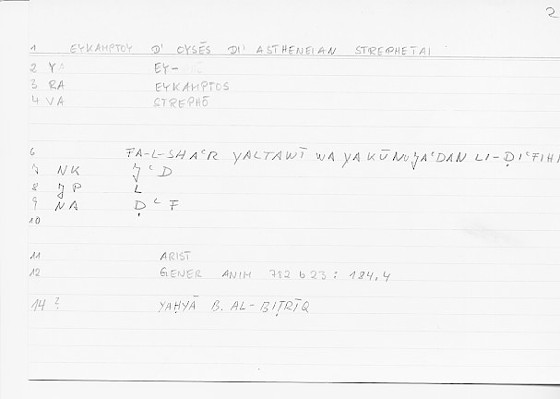 2
1 EYKAMPTOY D' OYSĒS DI' ASTHENEIAN STREPHETAI
2 Y EY-
3 RA EYKAMPTOS
4 VA STREPHŌ
6 FA-L-SHAʿR YALTAWĪ WA YAKŪNU JAʿDAN LI-ḌIʿFIHI
7 NK JʿD
8 JP L
9 NA ḌʿF
10
11 ARIST
12 GENER ANIM 782 b 23 : 184,4
14 ? YAḤYĀ B. AL-BIṬRĪQ